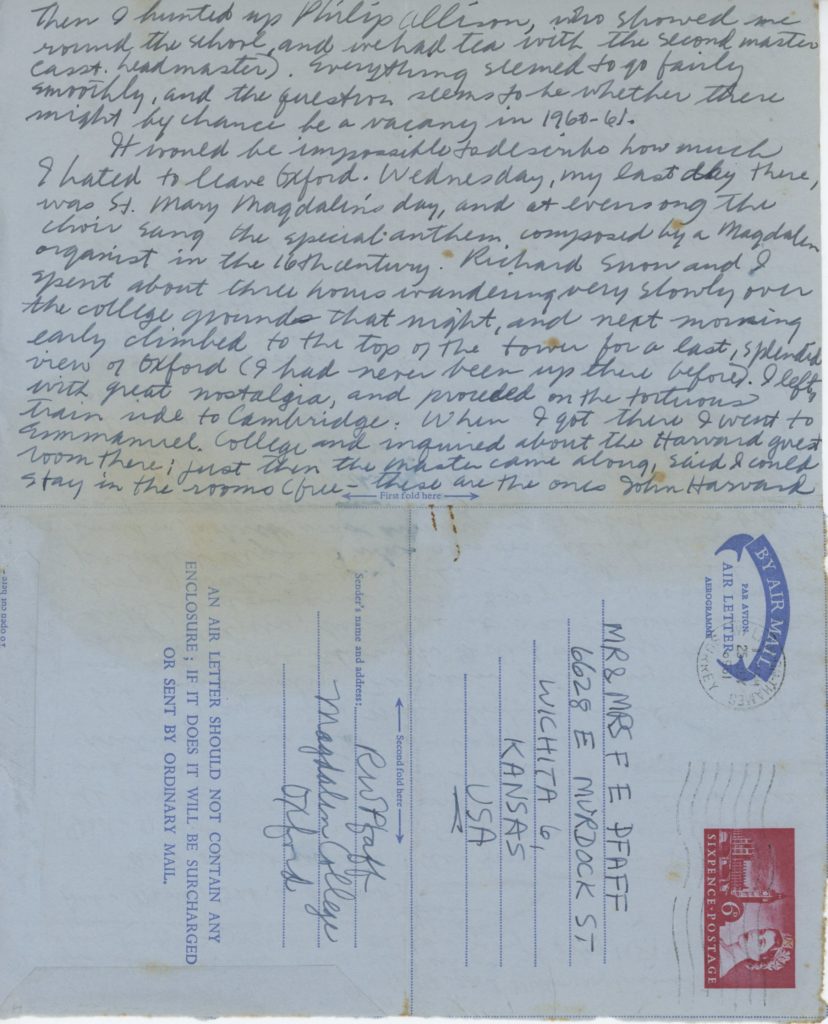 Then I hunted up Philip Allison, who showed me
round the school, and we had tea with the second master
(asst. headmaster). Everything seemed to go fairly
smoothly, and the question seems to be whether there
might by chance be a vacancy in 1960-61.
It would be impossible to describe how much
I hated to leave Oxford. Wednesday, my last day there,
was St. Mary Magdalin's day, and at evensong the
choir sang the special anthem composed by a Magdalen
organist in the 16th century. Richard Snow and I
spent about three hours wandering very slowly over
the college grounds that night, and next morning
early climbed to the top of the tower for a last, splendid
view of Oxford (I had never been up there before). I left
with great nostalgia, and proceeded on the tortuous
train ride to Cambridge. When I got there I went to
Emmanuel College and inquired about the Harvard guest
room there; just then the master came along, said I could
stay in the rooms (free – these are the ones John Harvard
First fold here
To open cut here
AN AIR LETTER SHOULD NOT CONTAIN ANY
ENCLOSURE; IF IT DOES IT WILL BE SURCHARGED
OR SENT BY ORDINARY MAIL.
Sender's name and address:
RW Pfaff
Magdalen College
Oxford
Second fold here
BY AIR MAIL
PAR AVION
AIR LETTER
AEROGRAMME
MR & MRS F E PFAFF
6628 E MURDOCK ST
WICHITA 6,
KANSAS
USA
SIXPENCE·POSTAGE
6D